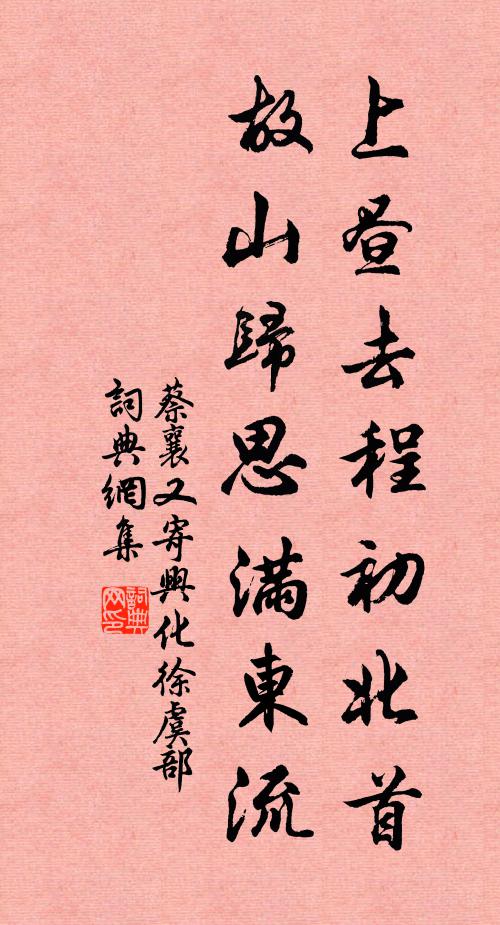 上晝去程初北首
故山歸思滿東流
蔡襄又寄興化徐虞部
詞典網集
詞典网印